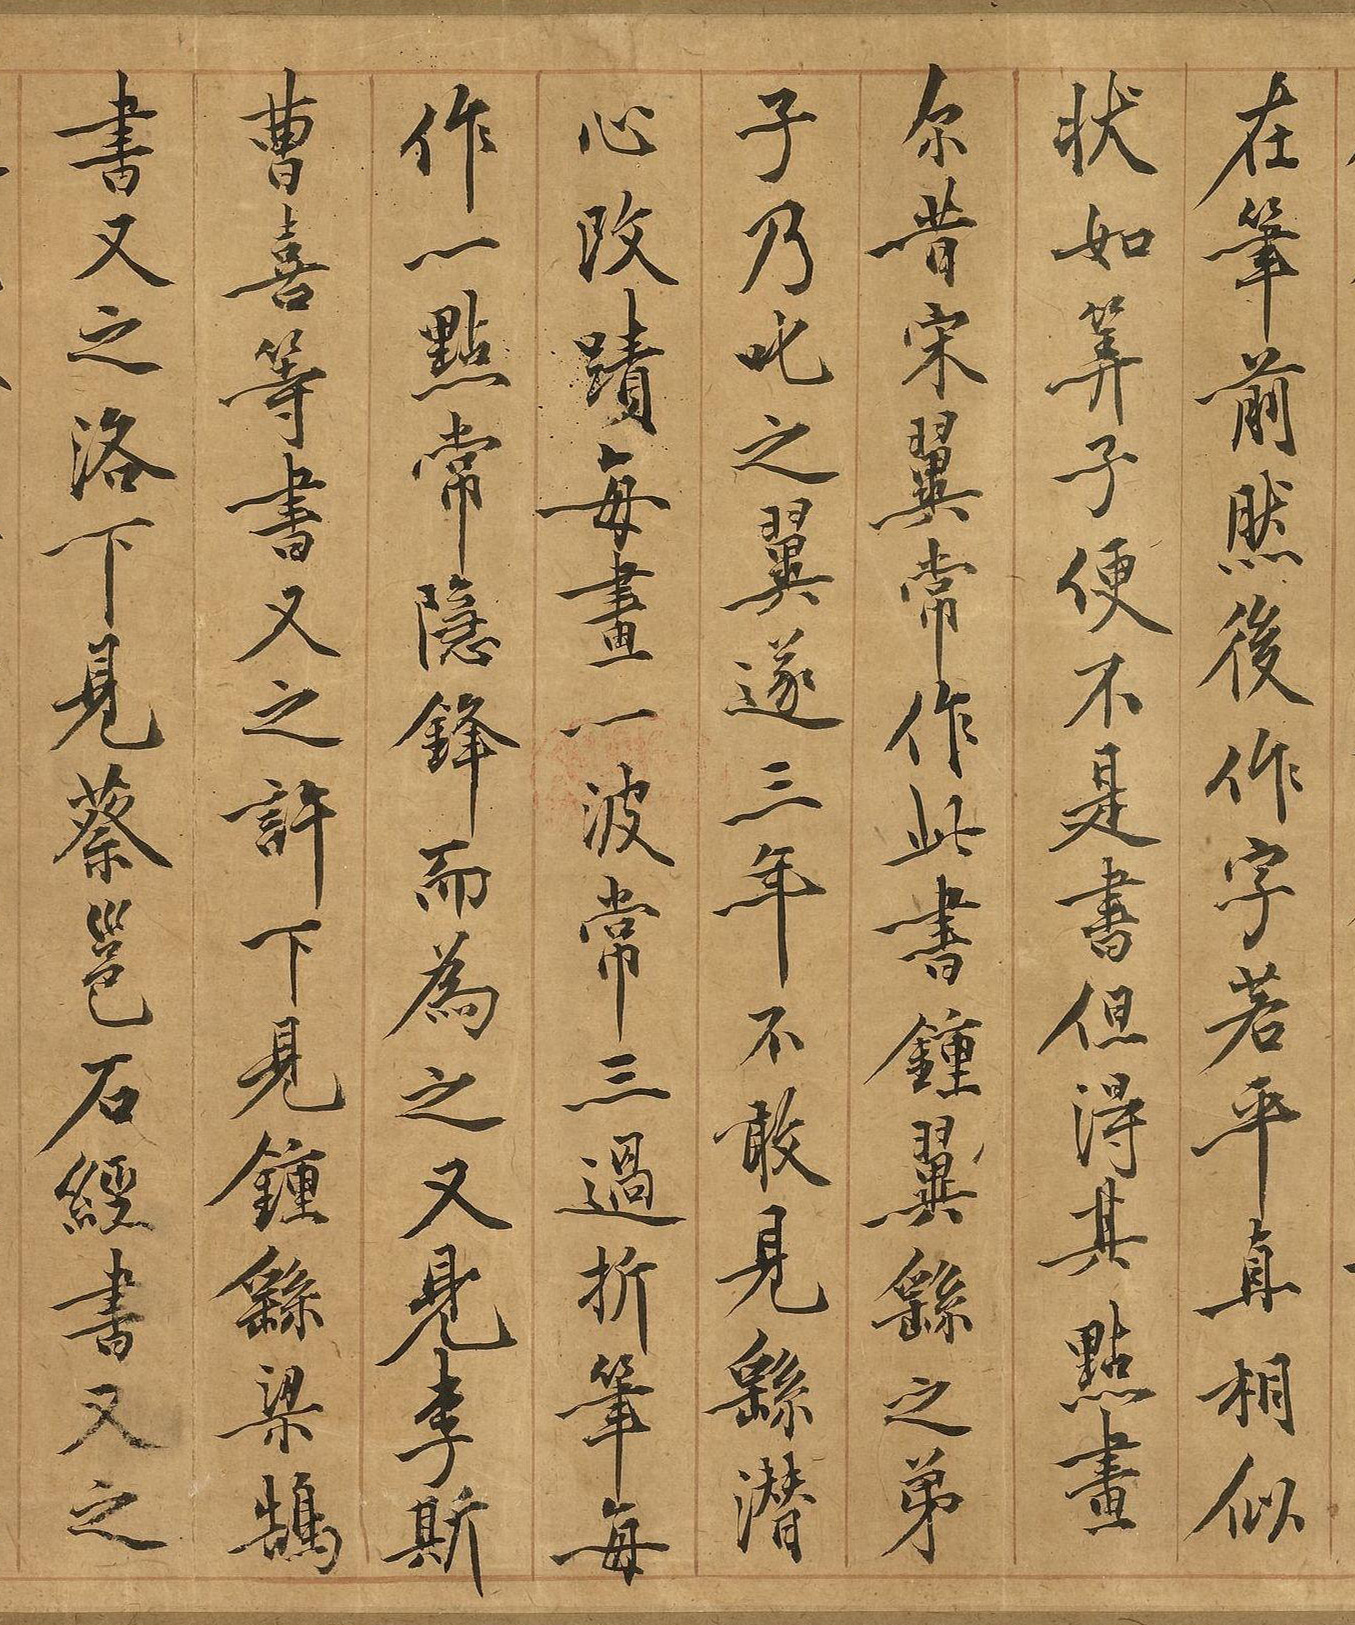 在筆前然後作字若平直相似
状如筭子便不是書但得其點畫
尔昔宋翼常作此書鍾翼繇之弟
子乃叱之翼遂三年不敢見繇潜
心改蹟每畫一波常三過折筆每
作一點常隱鋒而為之又見李斯
曹喜等書又之許下見鍾繇梁鵠
書又之洛下見蔡邕石經書又之